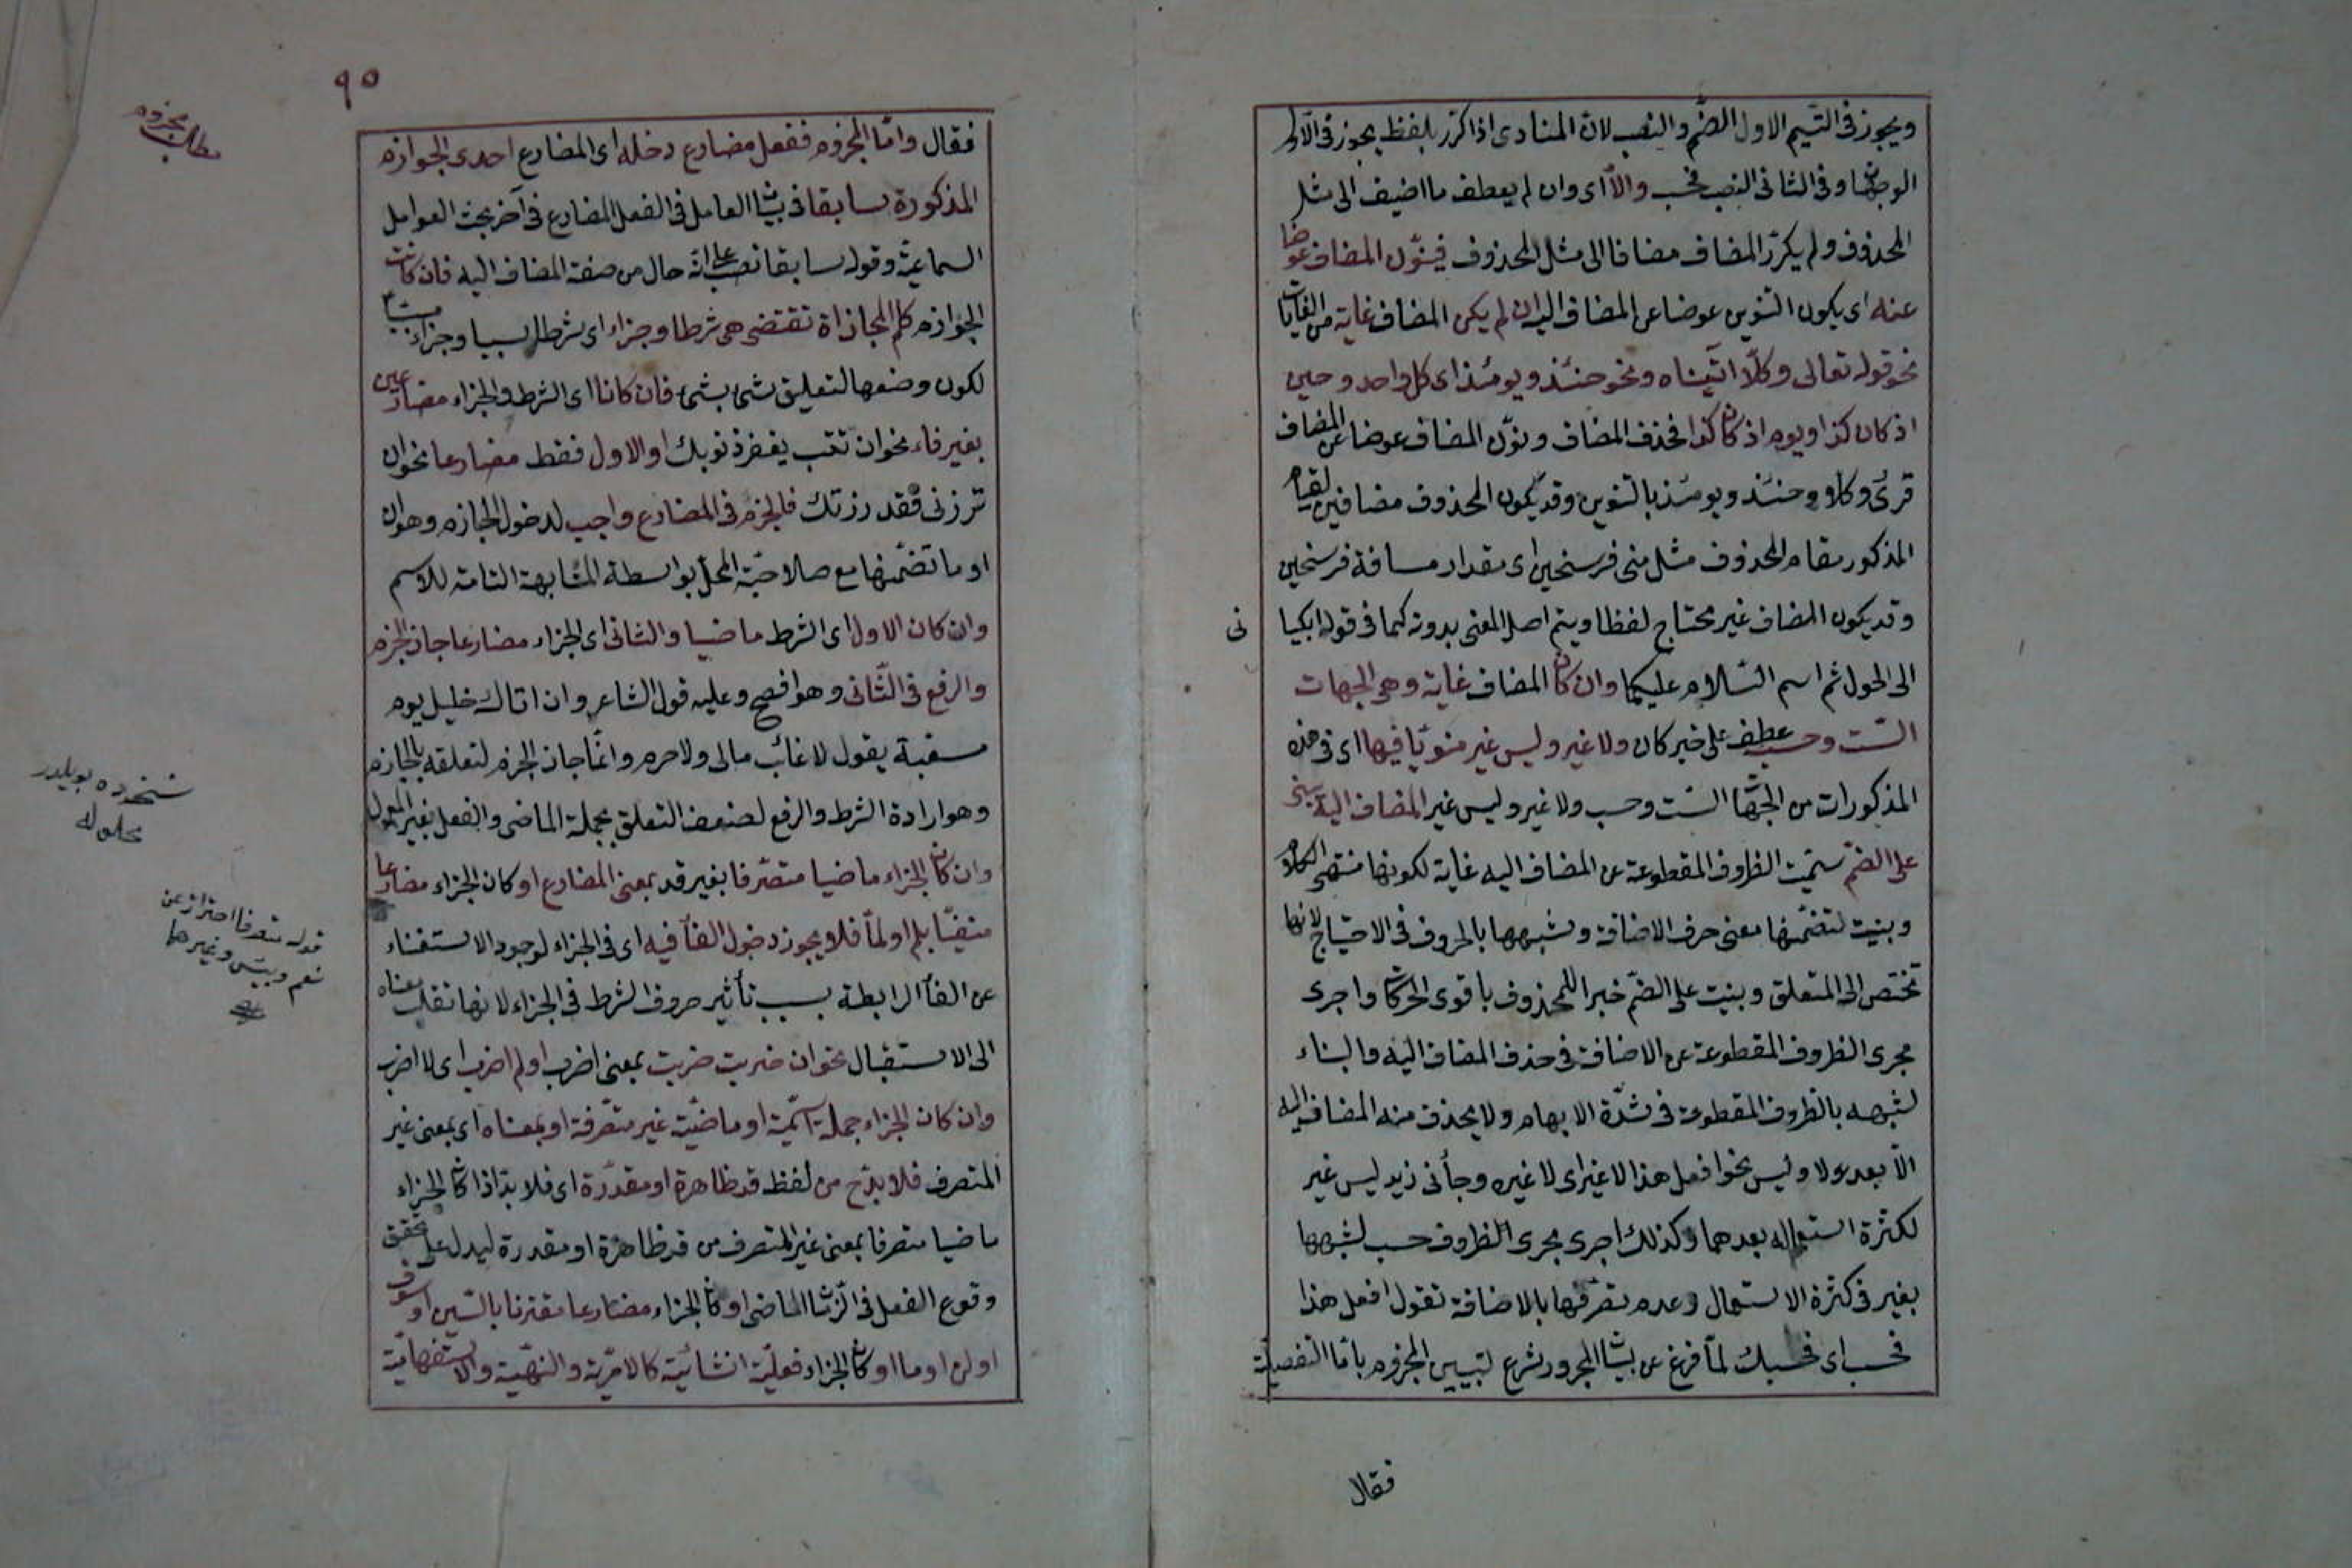 ويجوز فى التيم الاول الضم والنصب لان المنادى اذا كرّر بلفظ يجوز فى الاول
الوجهان وفى الثانى النصب فحسب والّا اى وان لم يعطف ما اضيف الى مثل
المحذوف ولم يكرّر المضاف مضافا الى مثل المحذوف فينوّن المضاف عوضا
عنه اى يكون التنوين عوضا عن المضاف اليه ان لم يكن المضاف غاية من الغايات
نحو قوله تعالى وكلّا اتيناه ونحو حنئذ ويومئذ اى كل واحد وحين
اذ كان كذا ويوم اذ كان كذا فحذف المضاف ونوّن المضاف عوضا عن المضاف
قرئ وكلا وحنئذ ويومئذ بالتنوين وقد يكون المحذوف مضافين لقيام
المذكور مقام المحذوف مثل منى فرسخين اى مقدار مسافة فرسخين
وقد يكون المضاف غير محتاج لفظا ويتم اصل المعنى بدونه كما فى قوله ابكيا
نى
الى الحول ثم اسم السّلام عليكما وان كان المضاف غاية وهى الجهات
السّت وحسب عطف على خبر كان ولا غير وليس غير منويّا فيها اى فى هذه
المذكورات من الجهات السّت وحسب ولا غير وليس غير المضاف اليه يبنى
على الضمّ سمّيت الظروف المقطوعة عن المضاف اليه غاية لكونها منتهى الكلام
وبنيت لتضمّنها معنى حرف الاضافة ولشبهها بالحروف فى الاحتياج لانها
تختص الى المتعلق وبنيت على الضمّ خبرا للمحذوف باقوى الحركات واجرى
مجرى الظروف المقطوعة عن الاضافة فى حذف المضاف اليه والبناء
لشبهه بالظروف المقطوعة فى شدّة الابهام ولا يحذف منه المضاف اليه
الّا بعد لا وليس نحو افعل هذا لا غير اى لا غيره وجأنى زيد ليس غير
لكثرة استعماله بعدهما وكذلك اجرى مجرى الظروف حسب لشبهها
بغير فى كثرة الاستعمال وعدم تعرّفها بالاضافة تقول افعل هذا
فحسب اى فحسبك لمّا فرغ عن بيان المجرور شرع لتبيين المجزوم بامّا التفصيلية
فقال
٩٥
مطلب مجزوم
فقال وامّا المجزوم ففعل مضارع دخله اى المضارع احدى الجوازم
المذكورة سابقا فى بيان العامل فى الفعل المضارع فى آخر بحث العوامل
السماعيّة وقوله سابقا نصب على انّه حال من صفة المضاف اليه فان كانت
الجوازم كلم المجازاة تقتضى هى شرطا وجزاء اى شرطا سببا وجزاء مسببا
لكون وضعها لتعليق شئ بشئ فان كانا اى الشرط والجزاء مضارعين
بغير فاء نحو ان تتب يغفر ذنوبك او الاول فقط مضارعا نحو ان
تزرنى فقد زرتك فالجزم فى المضارع واجب لدخول الجازم وهو ان
او ما تضمّنها مع صلاحيّة المحلّ بواسطة المشابهة التامة للاسم
وان كان الاول اى الشرط ماضيا والثانى اى الجزاء مضارعا جاز الجزم
والرفع فى الثّانى وهو افصح وعليه قول الشاعر وان اتاك خليل يوم
مسغبة يقول لا غائب مالى ولا حرم وانّما جاز الجزم لتعلقه بالجازم
وهو ارادة الشرط والرفع لضعف التعلق بجملة الماضى والفعل بغير المعمول
وان كان الجزاء ماضيا متصرّفا بغير قد بمعنى المضارع او كان الجزاء مضارعا
منفيّا بلم او لمّا فلا يجوز دخول الفأ فيه اى فى الجزاء لوجود الاستغناء
عن الفأ الرابطة بسبب تأثير حروف الشرط فى الجزاء لانها تقلب معناه
الى الاستقبال نحو ان ضربت ضربت بمعنى اضرب او لم اضرب اى لا اضرب
وان كان الجزاء جملة اسميّة او ماضيّة غير متصرّفة او بمعناه اى بمعنى غير
المتصرف فلا بدّ ح من لفظ قد ظاهرة او مقدّرة اى فلا بدّ اذا كان الجزاء
ماضيا متصرفا بمعنى غير المتصرف من قد ظاهرة او مقدرة ليدل على تحقق
وقوع الفعل فى الزمان الماضى او كان الجزاء مضارعا مقترنا بالسّين او سوف
او لن او ما او كان الجزاء فعليّة انشائيّة كالامريّة والنهييّة والاستفهاميّة
قوله متصرفا احتراز عن
نعم وبئس وغيرهما